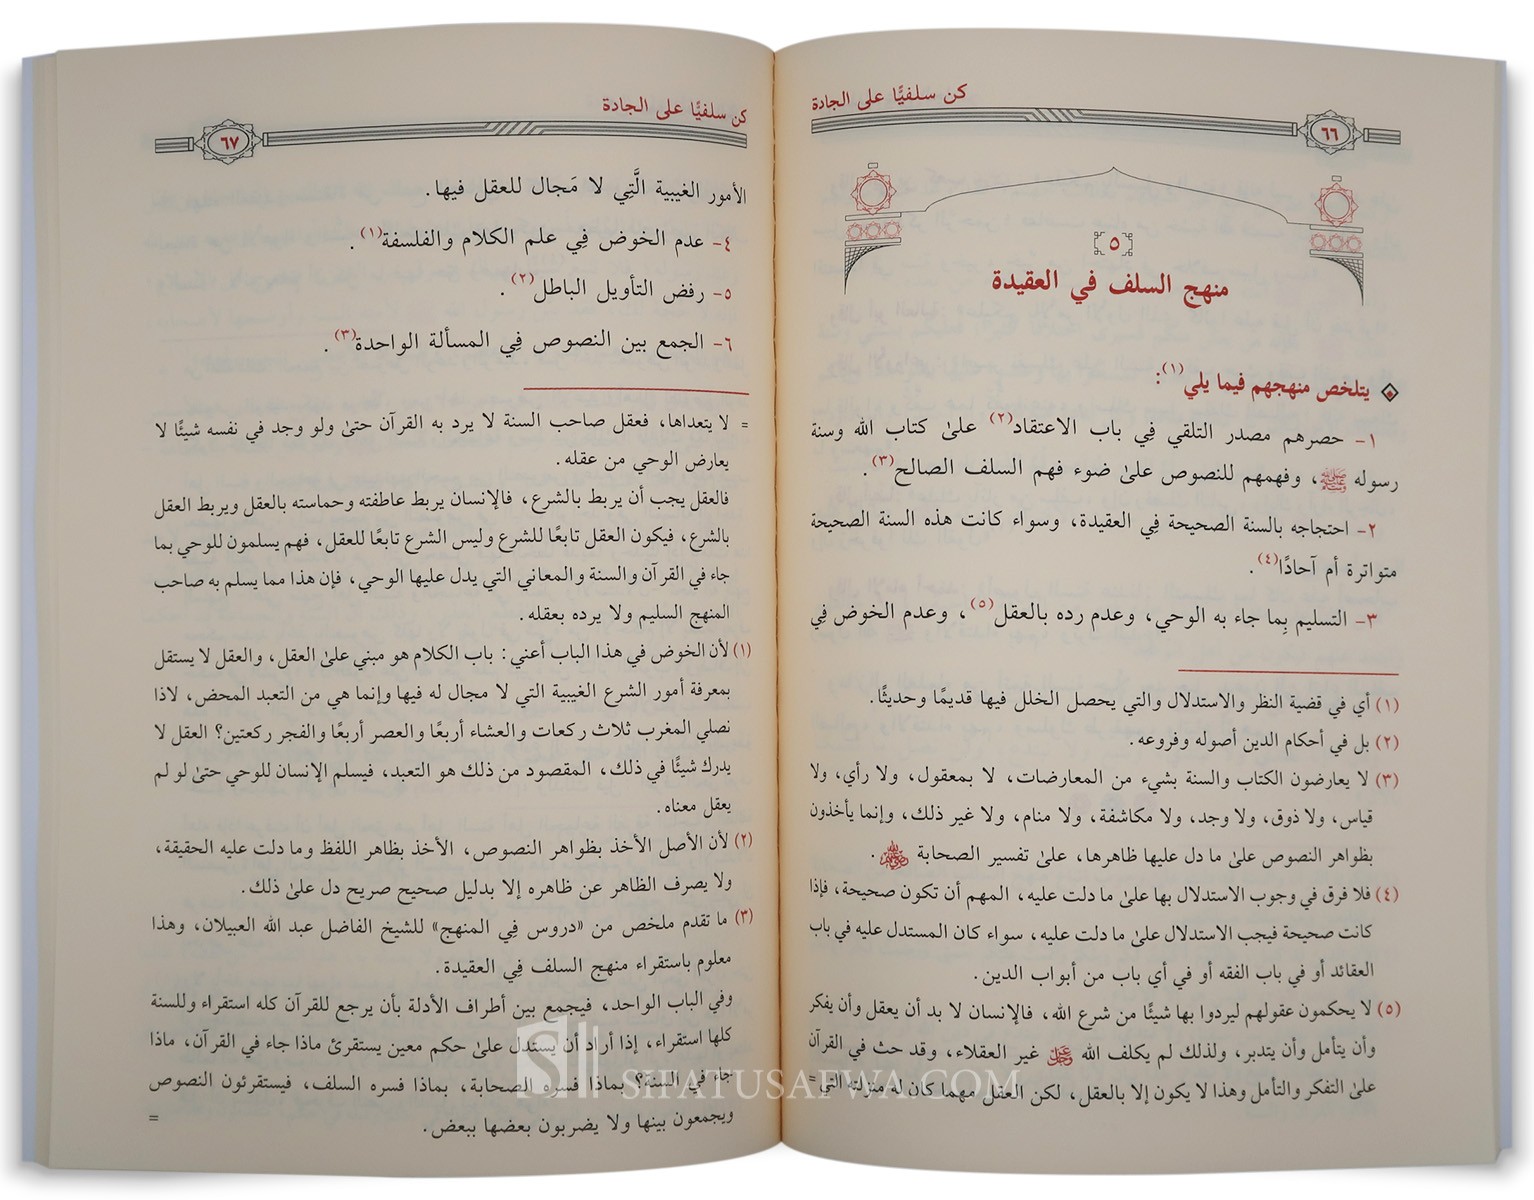 كن سلفيًّا على الجادة
٦٦
٥
منهج السلف في العقيدة
يتلخص منهجهم فيما يلي(١):
١- حصرهم مصدر التلقي فِي باب الاعتقاد(٢) علىٰ كتاب الله وسنة
رسوله ﷺ، وفهمهم للنصوص علىٰ ضوء فهم السلف الصالح(٣).
٢- احتجاجه بالسنة الصحيحة فِي العقيدة، وسواء كانت هذه السنة الصحيحة
متواترة أم آحادًا(٤).
٣- التسليم بِما جاء به الوحي، وعدم رده بالعقل(٥)، وعدم الخوض فِي
(١) أي في قضية النظر والاستدلال والتي يحصل الخلل فيها قديمًا وحديثًا.
(٢) بل في أحكام الدين أصوله وفروعه.
(٣) لا يعارضون الكتاب والسنة بشيء من المعارضات، لا بمعقول، ولا رأي، ولا
قياس، ولا ذوق، ولا وجد، ولا مكاشفة، ولا منام، ولا غير ذلك، وإنما يأخذون
بظواهر النصوص علىٰ ما دل عليها ظاهرها، علىٰ تفسير الصحابة ﷺ.
(٤) فلا فرق في وجوب الاستدلال بها علىٰ ما دلت عليه، المهم أن تكون صحيحة، فإذا
كانت صحيحة فيجب الاستدلال علىٰ ما دلت عليه، سواء كان المستدل عليه في باب
العقائد أو في باب الفقه أو في أي باب من أبواب الدين.
(٥) لا يحكمون عقولهم ليردوا بها شيئًا من شرع الله، فالإنسان لا بد أن يعقل وأن يفكر
وأن يتأمل وأن يتدبر، ولذلك لم يكلف الله عز وجل غير العقلاء، وقد حث في القرآن
علىٰ التفكر والتأمل وهذا لا يكون إلا بالعقل، لكن العقل مهما كان له منزلته التي =
كن سلفيًّا على الجادة
٦٧
الأمور الغيبية الَّتِي لا مَجال للعقل فيها.
٤- عدم الخوض فِي علم الكلام والفلسفة(١).
٥- رفض التأويل الباطل(٢).
٦- الجمع بين النصوص فِي المسألة الواحدة(٣).
= لا يتعداها، فعقل صاحب السنة لا يرد به القرآن حتىٰ ولو وجد في نفسه شيئًا لا
يعارض الوحي من عقله.
فالعقل يجب أن يربط بالشرع، فالإنسان يربط عاطفته وحماسته بالعقل ويربط العقل
بالشرع، فيكون العقل تابعًا للشرع وليس الشرع تابعًا للعقل، فهم يسلمون للوحي بما
جاء في القرآن والسنة والمعاني التي يدل عليها الوحي، فإن هذا مما يسلم به صاحب
المنهج السليم ولا يرده بعقله.
(١) لأن الخوض في هذا الباب أعني: باب الكلام هو مبني علىٰ العقل، والعقل لا يستقل
بمعرفة أمور الشرع الغيبية التي لا مجال له فيها وإنما هي من التعبد المحض، لاذا
نصلي المغرب ثلاث ركعات والعشاء أربعًا والعصر أربعًا والفجر ركعتين؟ العقل لا
يدرك شيئًا في ذلك، المقصود من ذلك هو التعبد، فيسلم الإنسان للوحي حتىٰ لو لم
يعقل معناه.
(٢) لأن الأصل الأخذ بظواهر النصوص، الأخذ بظاهر اللفظ وما دلت عليه الحقيقة،
ولا يصرف الظاهر عن ظاهره إلا بدليل صحيح صريح دل علىٰ ذلك.
(٣) ما تقدم ملخص من «دروس فِي المنهج» للشيخ الفاضل عبد الله العبيلان، وهذا
معلوم باستقراء منهج السلف فِي العقيدة.
وفي الباب الواحد، فيجمع بين أطراف الأدلة بأن يرجع للقرآن كله استقراء وللسنة
كلها استقراء، إذا أراد أن يستدل علىٰ حكم معين يستقرئ ماذا جاء في القرآن، ماذا
جاء في السنة؟ بماذا فسره الصحابة، بماذا فسره السلف، فيستقرئون النصوص
ويجمعون بينها ولا يضربون بعضها ببعض.
=
SHATUSAFWA.COM